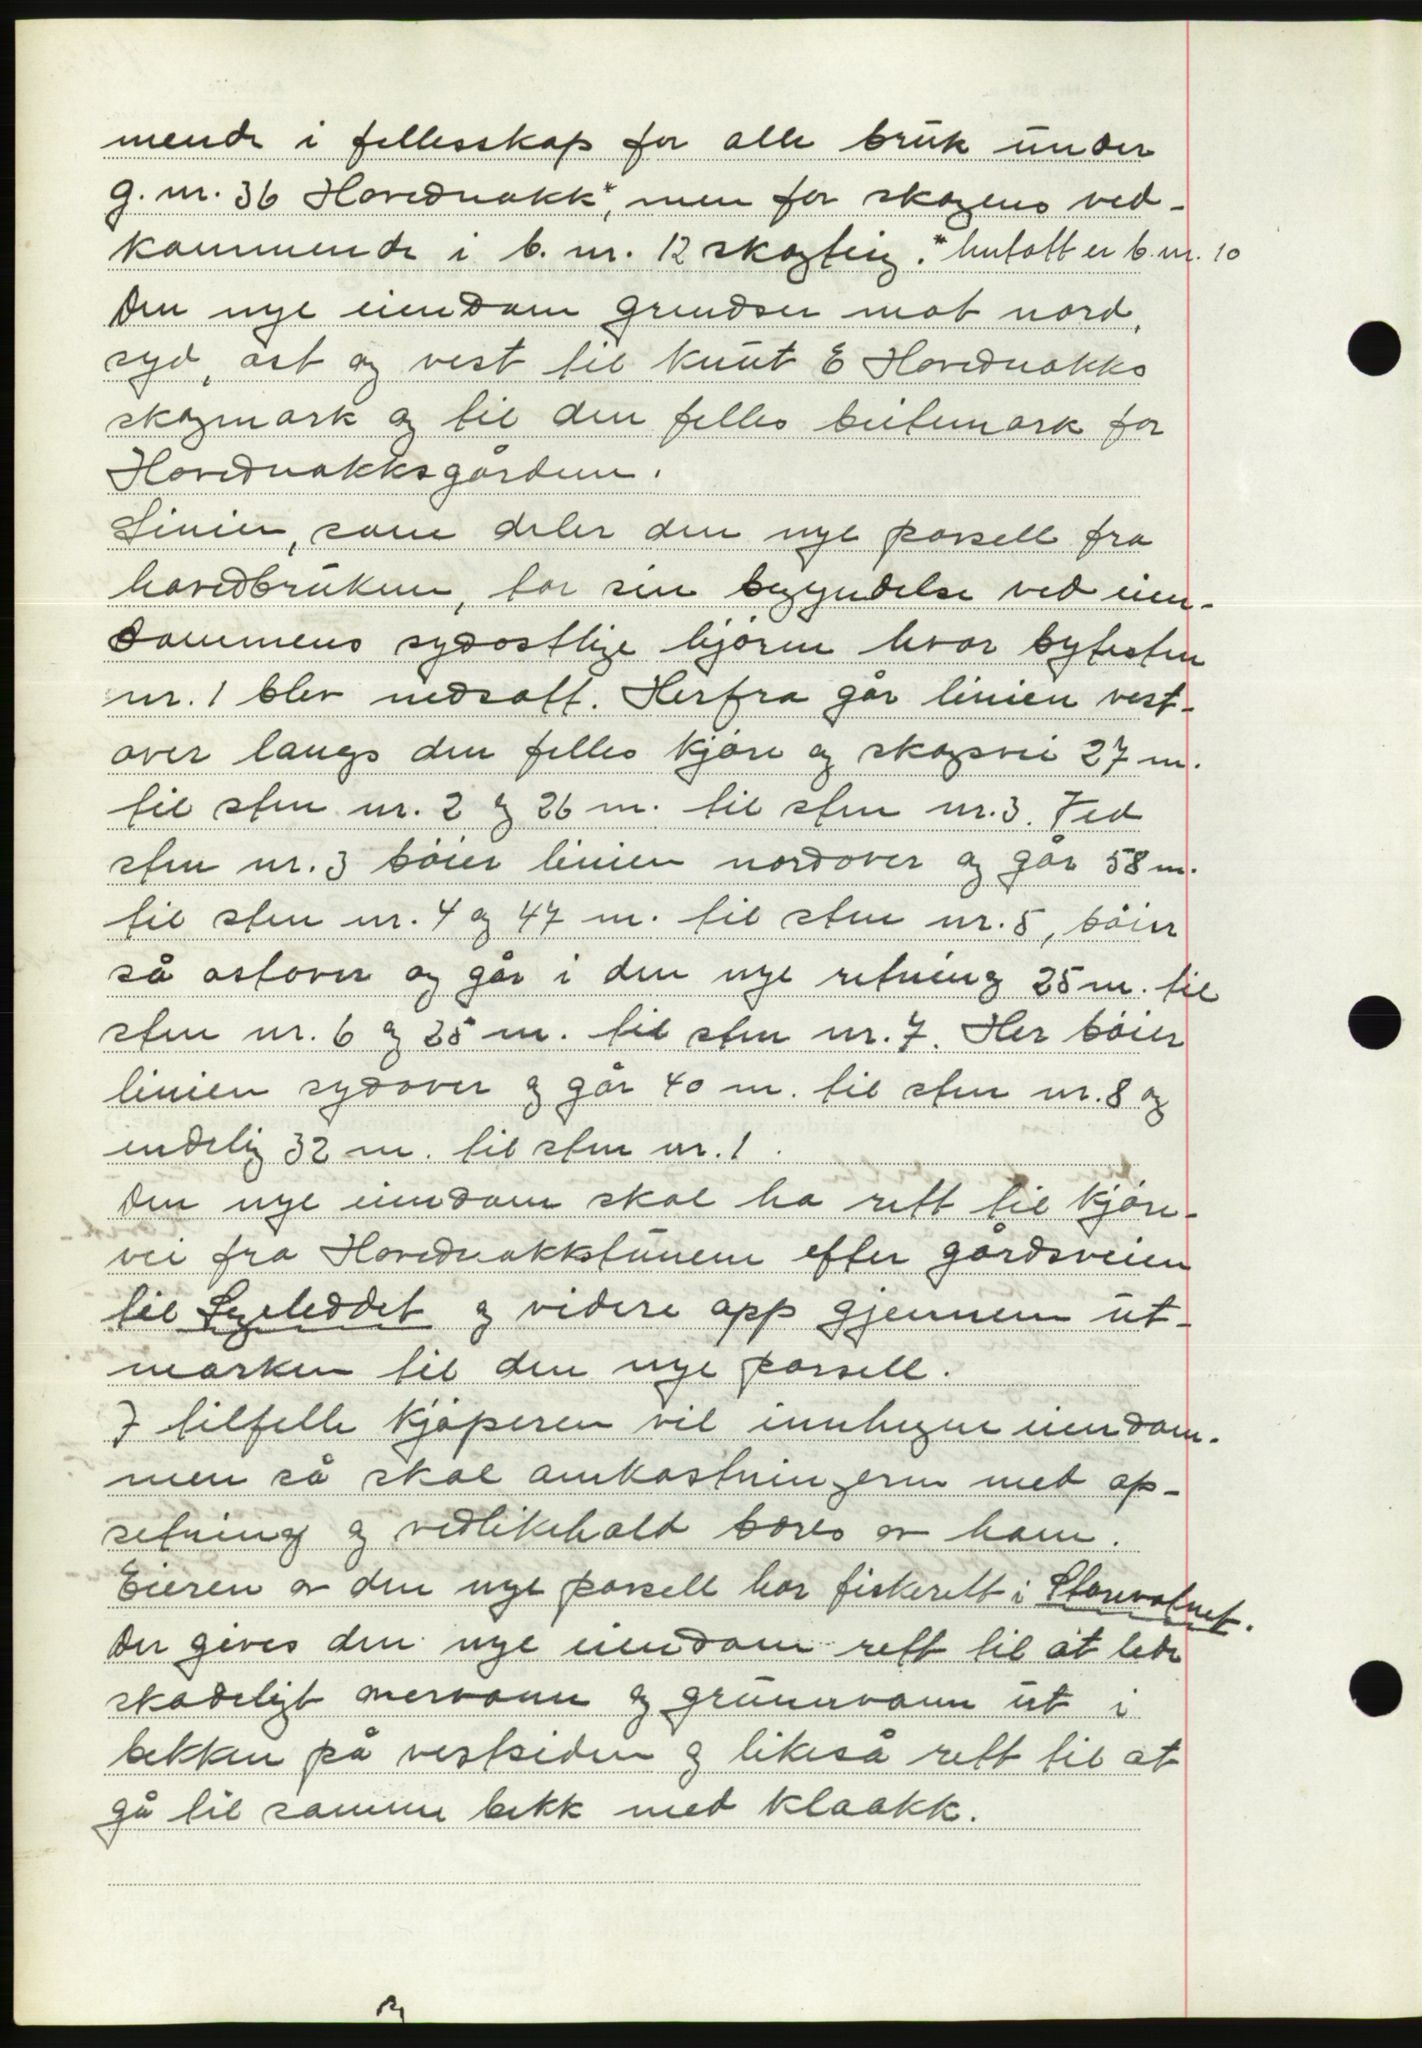 mende i fellesskap for alle bruk under
g. nr. 36 Hovednakk*, men for skogens ved-
kommende i b. nr. 12 skogteig. * Untatt er b. nr. 10
Den nye eiendom grendser mot nord,
syd, ost og vest til Knut E Hovednakks
skogmark og til den felles beitemark for
Hovednakksgården.
Linien, som deler den nye parsell fra
hovedbruken, tar sin begyndelse ved eien-
dommens sydostlige hjörne hvor bytesten
nr. 1 blev nedsatt. Herfra går linien vest-
over langs den felles kjöre og skogsvei 27 m.
til sten nr. 2 og 26 m. til sten nr. 3. Ved
sten nr. 3 böier linien nordover og går 58 m.
til sten nr. 4 og 47 m. til sten nr. 5, böier
så ostover og går i den nye retning 25 m. til
sten nr. 6 og 25 m. til sten nr. 7. Her böier
linien sydover og går 40 m. til sten nr. 8 og
endelig 32 m. til sten nr. 1.
Den nye eiendom skal ha rett til kjöre-
vei fra Hovednakktunene efter gårdsveien
til Legeleddet og videre opp gjennem ut-
marken til den nye parsell.
I tilfelle kjöperen vil innhegne eiendom-
men så skal omkostningerne med op-
setning og vedlikehold bæres av ham.
Eieren av den nye parsell har fiskerett i Storevatnet.
Der gives den nye eiendom rett til at lede
skadeligt overvann og grunnvann ut i
bekken på vestsiden og likeså rett til at
gå til samme bekk med kloakk.